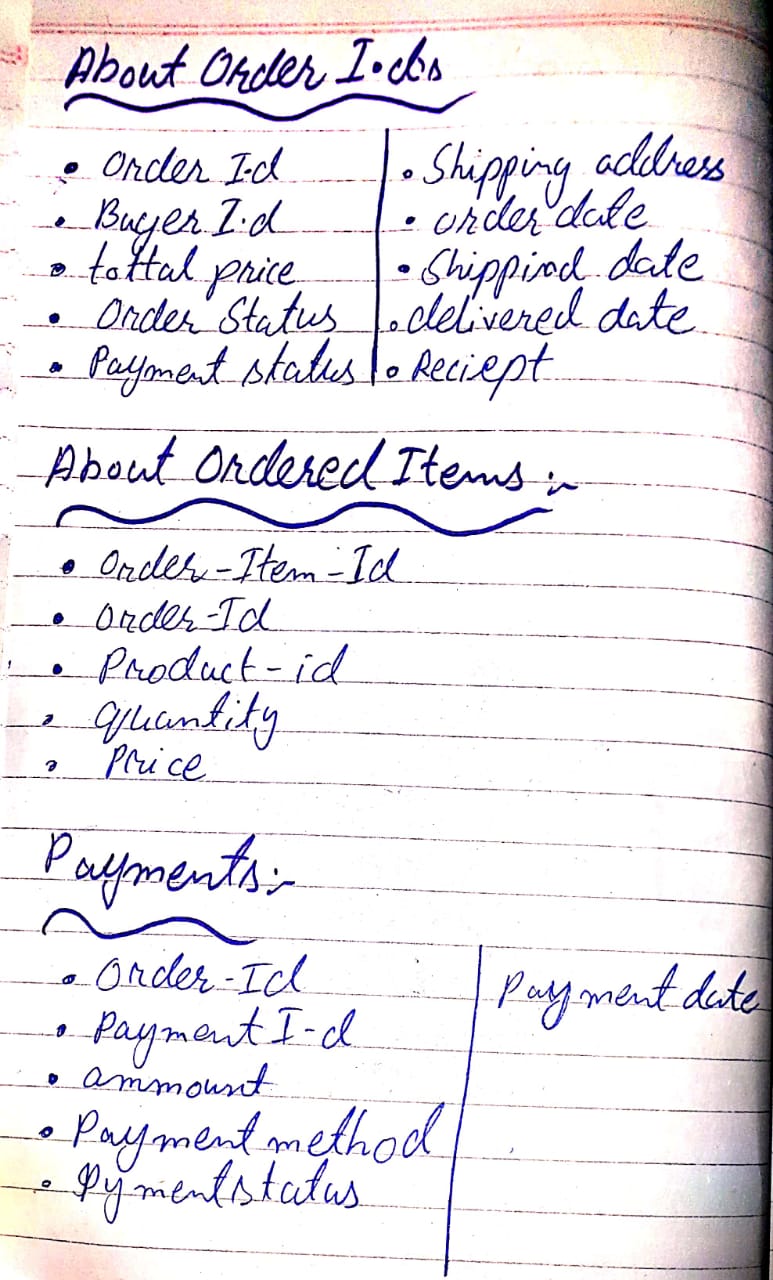 About Order I.ds
• Order I.d
• Buyer I.d
• tottal price
• Order Status
• Payment status
• Shipping address
• order date
• Shippind date
• delivered date
• Reciept
About Ordered Items :-
• Order-Item-Id
• Order-Id
• Product-id
• Quantity
• Price
Payments:-
• Order-Id
• Payment I-d
• ammount
• Payment method
• Pyment status
Payment date